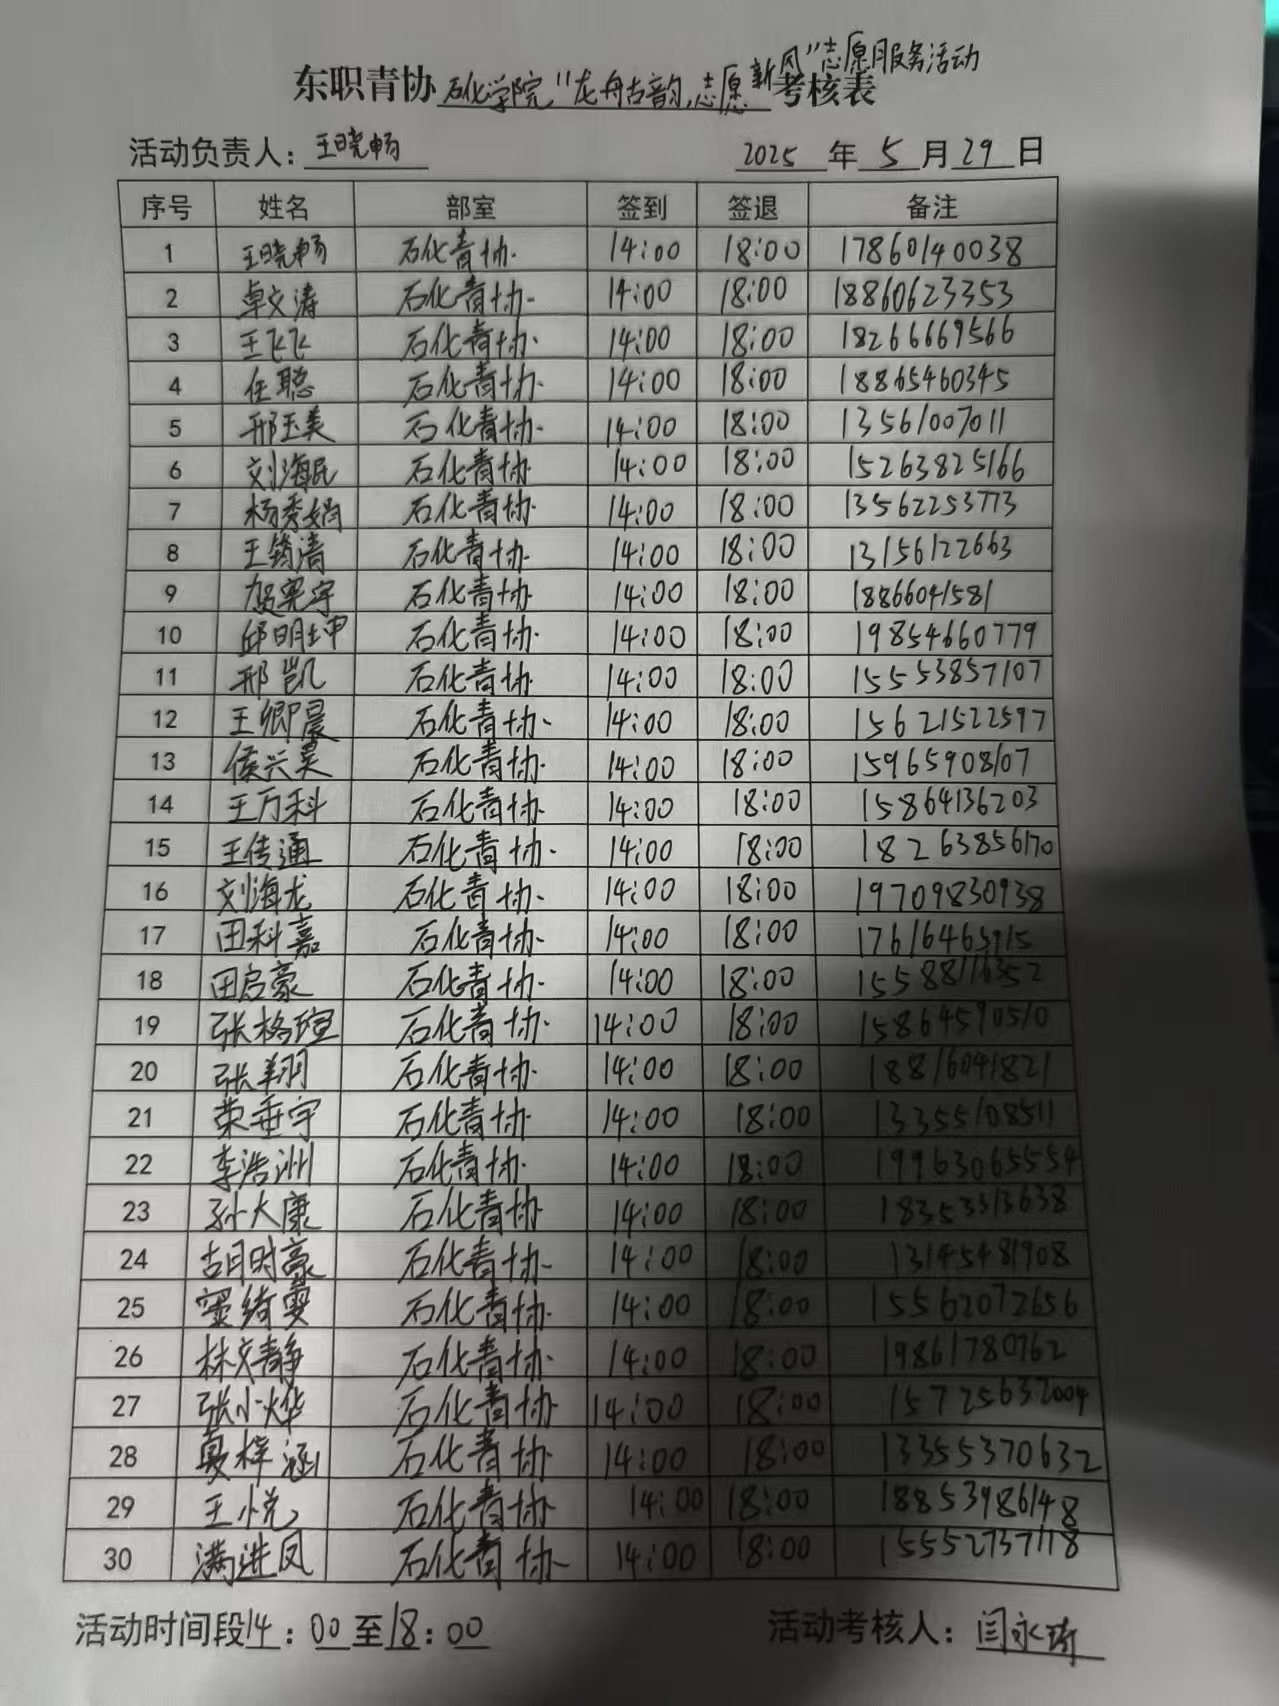 东职青协石化学院“龙舟古韵,志愿新风”志愿服务活动考核表
活动负责人：王晓畅 2025 年 5 月 29 日
序号 姓名 部室 签到 签退 备注
1 王晓畅 石化青协 14:00 18:00 17860140038
2 卓文涛 石化青协 14:00 18:00 18860623353
3 王飞飞 石化青协 14:00 18:00 18266669566
4 任聪 石化青协 14:00 18:00 18865460345
5 邢玉美 石化青协 14:00 18:00 13561007011
6 刘海民 石化青协 14:00 18:00 15263825166
7 杨秀娟 石化青协 14:00 18:00 13562253773
8 王筠清 石化青协 14:00 18:00 13156122663
9 贺宪宇 石化青协 14:00 18:00 18866041581
10 邱明坤 石化青协 14:00 18:00 19854660779
11 邢凯 石化青协 14:00 18:00 15553857107
12 王卿晨 石化青协 14:00 18:00 15621522597
13 侯兴昊 石化青协 14:00 18:00 15965908107
14 王万科 石化青协 14:00 18:00 15864136203
15 王传通 石化青协 14:00 18:00 18263856170
16 刘海龙 石化青协 14:00 18:00 19709830938
17 田科嘉 石化青协 14:00 18:00 17616465915
18 田启豪 石化青协 14:00 18:00 15588116352
19 张格瑄 石化青协 14:00 18:00 15864590510
20 张翔 石化青协 14:00 18:00 18816041821
21 荣垂宇 石化青协 14:00 18:00 13355108511
22 李浩洲 石化青协 14:00 18:00 19963065554
23 孙大康 石化青协 14:00 18:00 18353313638
24 胡时豪 石化青协 14:00 18:00 13145481908
25 绮雯 石化青协 14:00 18:00 15562072656
26 林文静 石化青协 14:00 18:00 19861780762
27 张小烨 石化青协 14:00 18:00 15725632004
28 夏梓涵 石化青协 14:00 18:00 13355370632
29 王悦 石化青协 14:00 18:00 18853986148
30 满进凤 石化青协 14:00 18:00 15552737118
活动时间段14：00至18：00 活动考核人：闫永琦